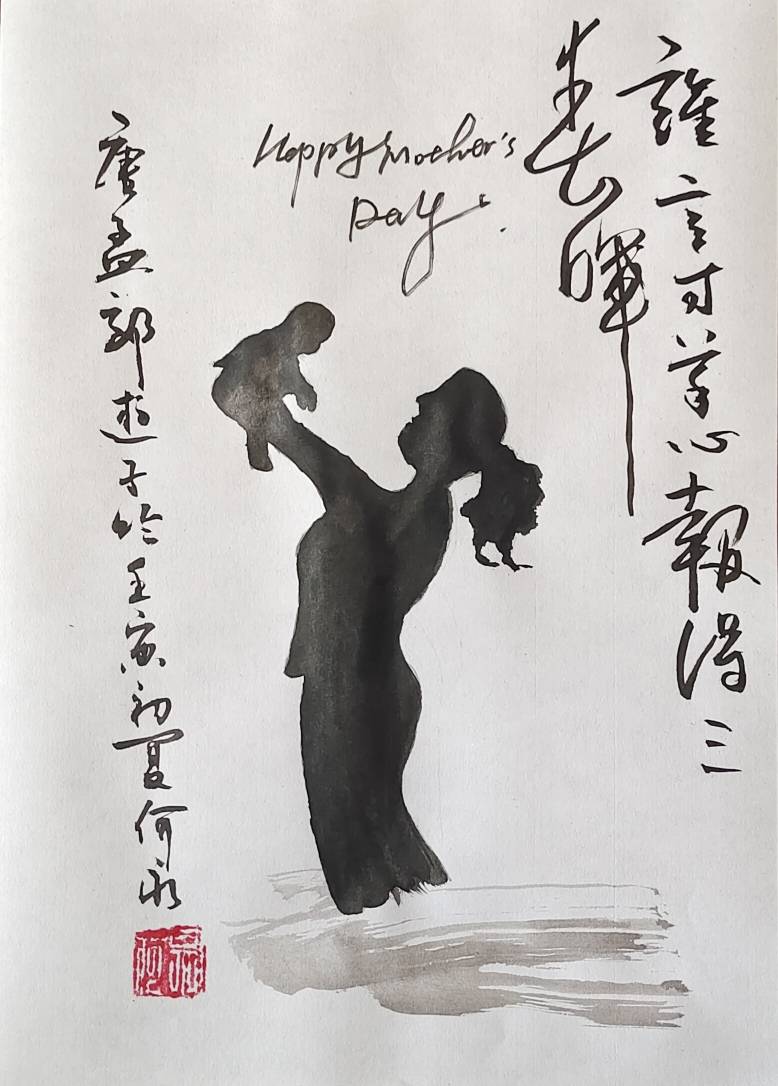 誰言寸草心報得三
春暉
Happy Mother's
Day.
唐孟郊遊子吟壬寅初夏何永